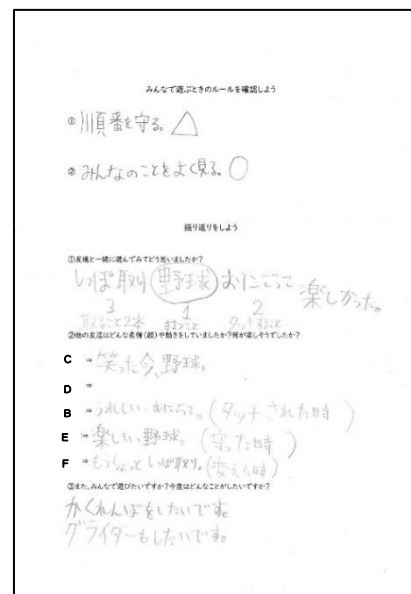 みんなで遊ぶときのルールを確認しよう
① 順番を守る。△
② みんなのことをよく見る。○
振り返りをしよう
①友達と一緒に遊んでみてどう思いましたか?
しっぽ取り 野球 おにごって 楽しかった。
3 1 2
取ること2本 打つこと タッチすること
②他の友達はどんな表情(顔)や動きをしていましたか?何が楽しそうでしたか?
C ⇒ 笑った今、野球。
D ⇒
B ⇒ うれしい、おにごって。(タッチされた時)
E ⇒ 楽しい、野球。(守った時)
F ⇒ もうちょっとしっぽ取り。(変えた時)
③また、みんなで遊びたいですか?今度はどんなことがしたいですか?
かくれんぼをしたいです。
グライダーもしたいです。